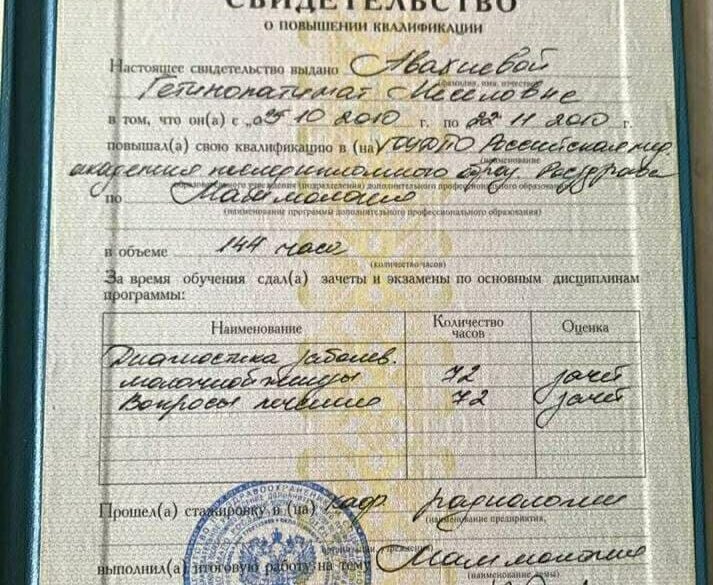 СВИДЕТЕЛЬСТВО
О ПОВЫШЕНИИ КВАЛИФИКАЦИИ
Настоящее свидетельство выдано Авахиевой
(фамилия, имя, отчество)
Меселовне
в том, что он(а) с „25 10 2010 г. по 22 11 2010 г.
повышал(а) свою квалификацию в (на) ГОУДПО Российская мед.
(наименование
академия последипломного образ. Росздрава
образовательного учреждения (подразделения) дополнительного профессионального образования)
по Маммологии
(наименование программы дополнительного профессионального образования)
в объеме 144 часа
(количество часов)
За время обучения сдал(а) зачеты и экзамены по основным дисциплинам
программы:
Наименование Количество часов Оценка
Диагностика заболев.
молочной железы 72 зачет
Вопросы лечения 72 зачет
Прошел(а) стажировку в (на) каф. радиологии
(наименование предприятия,
организации, учреждения)
выполнил(а) итоговую работу на тему Маммология
(наименование темы)